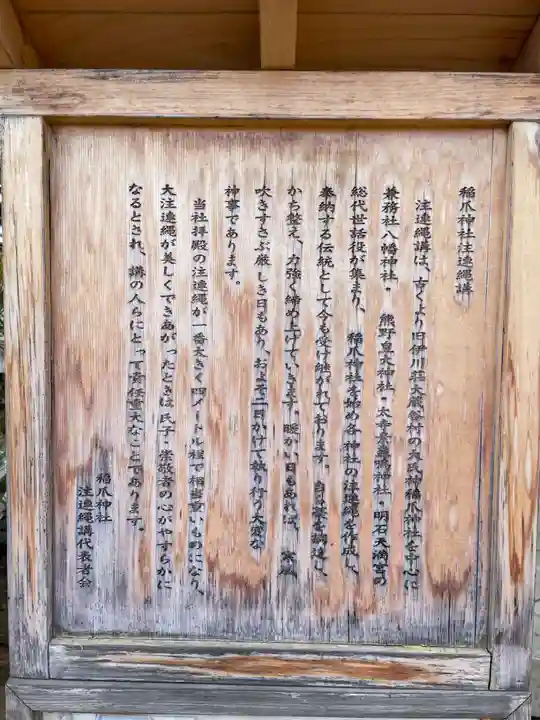 稲爪神社注連縄講
注連縄講は、古くより旧伊川荘大蔵谷村の大氏神稲爪神社を中心に
兼務社八幡神社・熊野皇大神社・太寺素義鳴神社・明石天満宮の
総代世話役が集まり、稲爪神社を始め各神社の注連縄を作成し、
奉納する伝統として今も受け継がれております。当日藁を調達し、
かち整え、力強く締め上げていきます。暖かい日もあれば、寒風
吹きすさぶ厳しき日もあり、およそ一日がけで執り行う大変な
神事であります。
当社拝殿の注連縄が一番太きく四メートル程で相当重いものになり、
大注連縄が美しくできあがったときは氏子・崇敬者の心がやすらかに
なるとされ、講の人らにとって責任重大なことであります。
稲爪神社
注連縄講代表者会